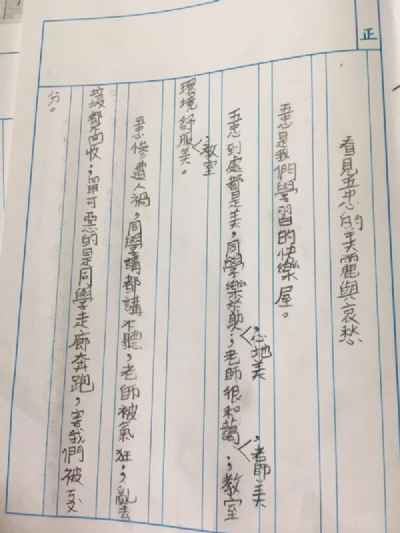 正
看見五忠的美麗與哀愁
五忠是我們學習的快樂屋。
五忠到處都是美，同學樂；老師很和藹；教室
，心地美
，老師美
環境舒服美。
，教室
五忠慘遭人禍，同學講都講不聽，老師被氣狂，亂丟
垃圾都不回收，；最可惡的是同學走廊奔跑，害我們被
分。